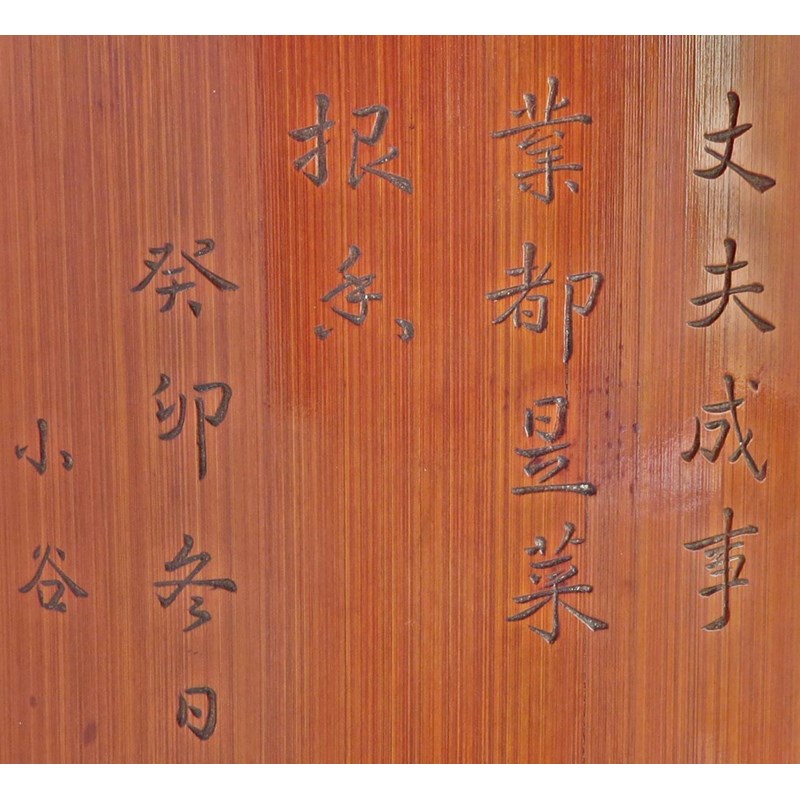 丈夫成事
業都是菜
根香
癸卯冬日
小谷